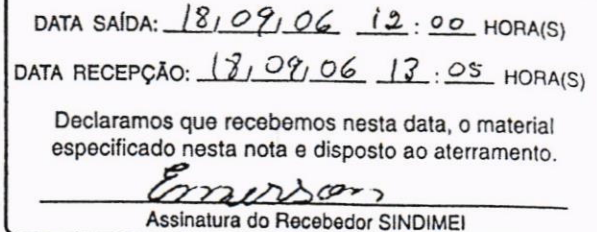 DATA SAÍDA: 18/09/06 12:00 HORA(S)
DATA RECEPÇÃO: 18/09/06 13:05 HORA(S)
Declaramos que recebemos nesta data, o material
especificado nesta nota e disposto ao aterramento.
Emerson
Assinatura do Recebedor SINDIMEI